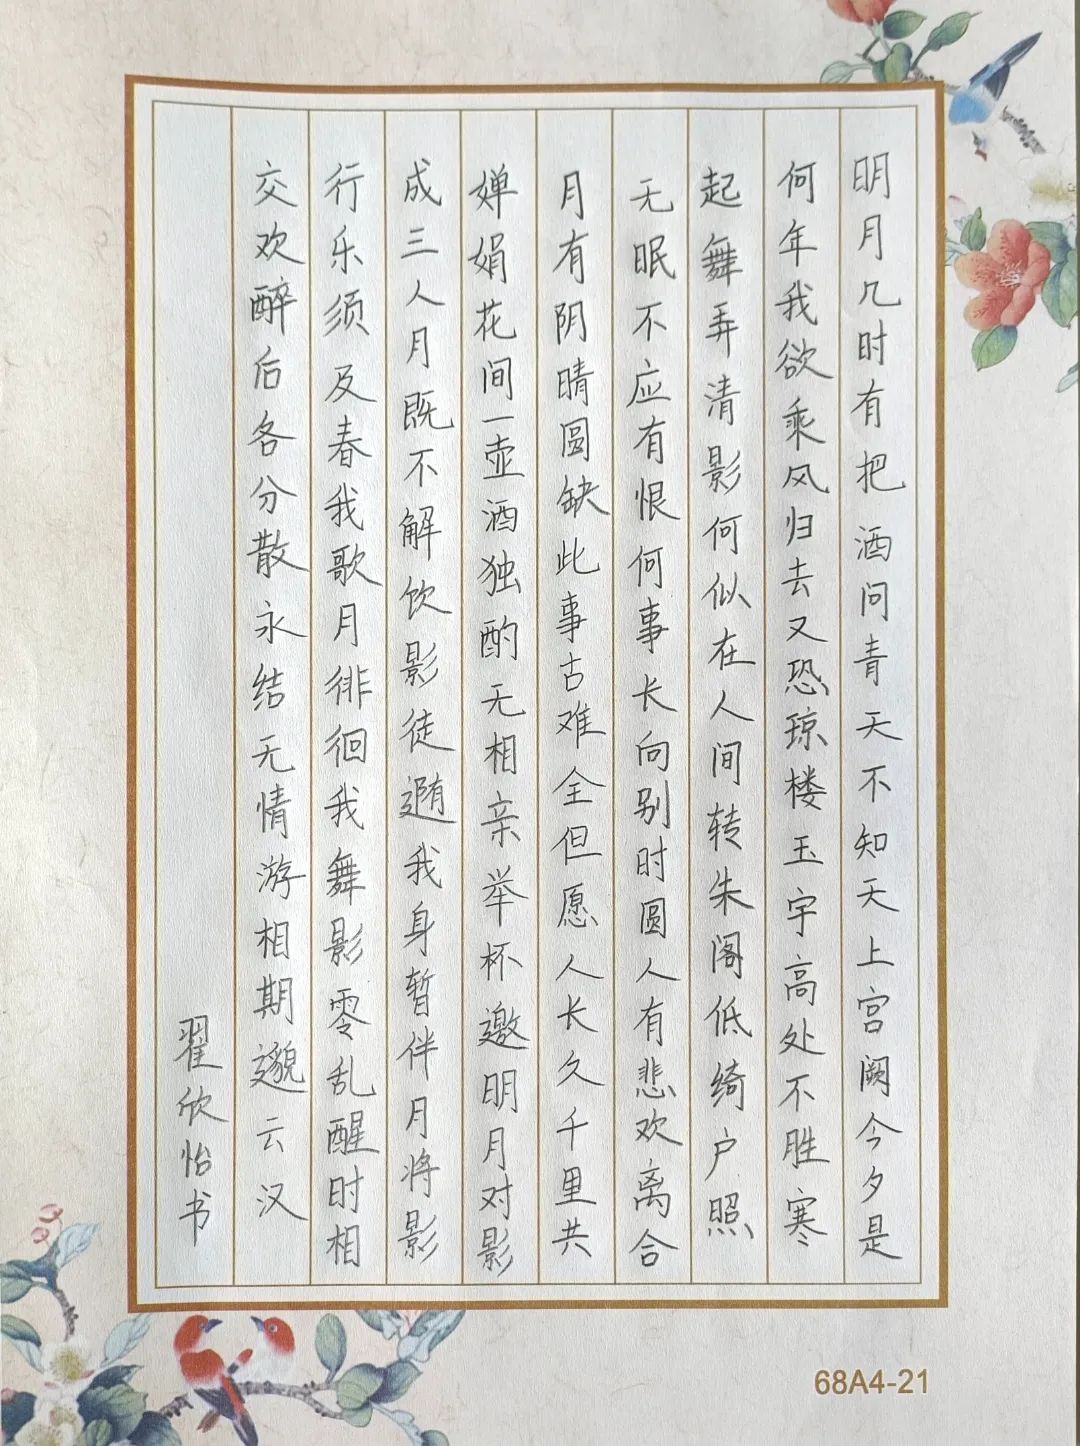 明月几时有把酒问青天不知天上宫阙今夕是
何年我欲乘风归去又恐琼楼玉宇高处不胜寒
起舞弄清影何似在人间转朱阁低绮户照
无眠不应有恨何事长向别时圆人有悲欢离合
月有阴晴圆缺此事古难全但愿人长久千里共
婵娟花间一壶酒独酌无相亲举杯邀明月对影
成三人月既不解饮影徒我身暂伴月将影
行乐须及春我歌月徘徊我舞影零乱醒时相
交欢醉后各分散永结无情游相期邈云汉
翟欣怡书
68A4-21